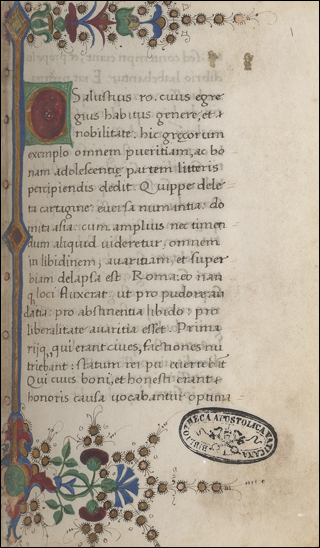 Salustius ro. ciuis egre
gius habitus genere, et a
nobilitate: hic gręcorum
exemplo omnem pueritiam, ac bo
nam adolescentię partem litteris
percipiendis dedit. Quippe dele
ta cartagine: euersa numantia: do
mita asia: cum amplius nec timen
dum aliquid uideretur, omnem
in libidinem, auaritiam, et super
biam delapsa est Roma: eo nan
q loci fluxerat, ut pro pudore, au
datia: pro abstinentia libido: pro
liberalitate auaritia esset. Prima
rijq, qui erant ciues, factiones nu
triebant: statum rei pu
Qui ciuis boni, et honesti erant,
honoris causa uocabantur optima
BIBLIOTHECA APOSTOLICA VATICANA